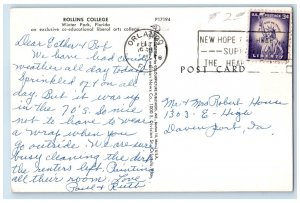 ROLLINS COLLEGE P17194
Winter Park, Florida
an exclusive co-educational liberal arts college
Dear Esther & Bob,
We have had cool
weather all day today.
Sprinkled off & on all
day. But it was up
in the 70's. So nice
not to have to wear
a wrap when you
go outside. We are
busy cleaning the dirt
the renters left. Painting
all their room. Love
Paul & Ruth
ORLANDO
FEB
NEW HOPE
SUP
THE HEA
U.S. POSTAGE 3¢
LIBERTY
POST CARD
Mr & Mrs Robert House
1303 E - High
Davenport, Ia.